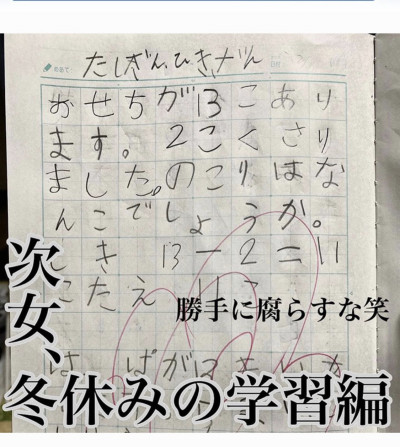 たしざん、ひきざん
おせちが13こあり
ます。2こくさり
ました。のこりはな
んこでしょうか。
しき 13-2=11
こたえ 11こ
勝手に腐らすな笑
次女、
冬休みの学習編